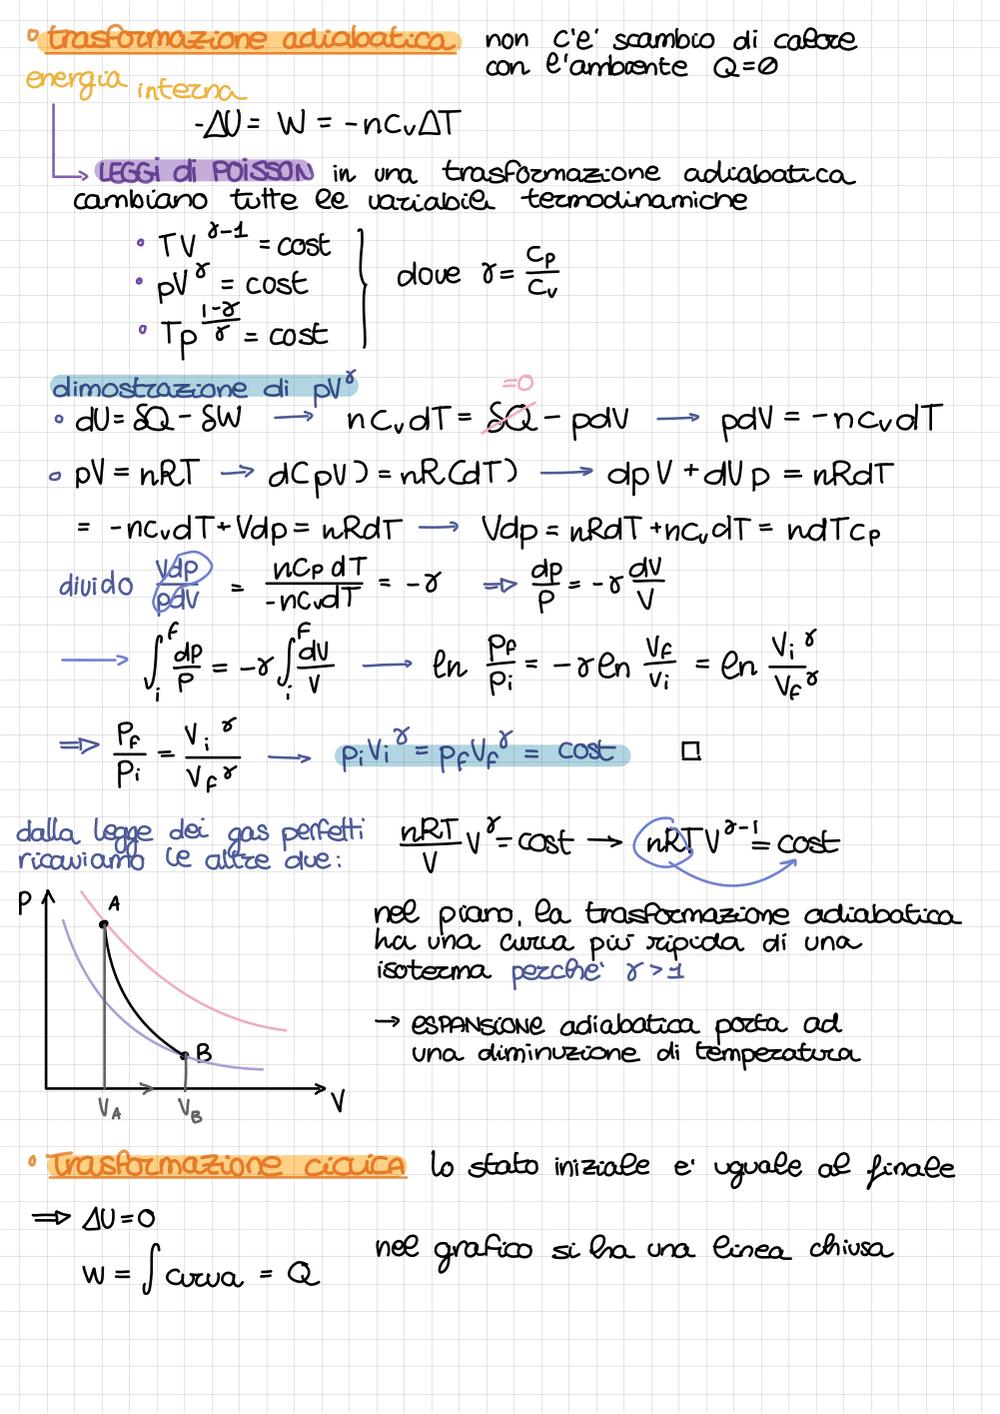 ° trasformazione adiabatica non c'e' scambio di calore
con l'ambiente Q=0
energia interna
-ΔU = W = -ncᵥΔT
LEGGI di POISSON in una trasformazione adiabatica
cambiano tutte le variabili termodinamiche
• TV^(γ-1) = cost
• pV^γ = cost
dove γ = cp/cv
° Tp^((1-γ)/γ) = cost
dimostrazione di pV^γ
=0
° dU = δQ - δW → ncᵥdT = δQ - pdV → pdV = -ncᵥdT
° pV = nRT → d(pV) = nR(dT) → dpV + dVp = nRdT
= -ncᵥdT + Vdp = nRdT → Vdp = nRdT + ncᵥdT = ndTcp
divido Vdp/pdV = ncp dT/-ncᵥdT = -γ ⇒ dp/p = -γ dV/V
→ ∫ᵢᶠ dp/p = -γ ∫ᵢᶠ dV/V → ln pf/pi = -γ ln Vf/Vi = ln Vi^γ/Vf^γ
⇒ Pf/Pi = Vi^γ/Vf^γ → piVi^γ = pfVf^γ = cost □
dalla legge dei gas perfetti
ricaviamo le altre due:
nRT/V V^γ = cost → nRTV^(γ-1) = cost
P
A
B
V_A
V_B
V
nel piano, la trasformazione adiabatica
ha una curva più ripida di una
isoterma perche' γ > 1
→ ESPANSIONE adiabatica porta ad
una diminuzione di temperatura
• Trasformazione ciclica lo stato iniziale e' uguale al finale
⇒ ΔU = 0
nel grafico si ha una linea chiusa
W = ∫ curva = Q